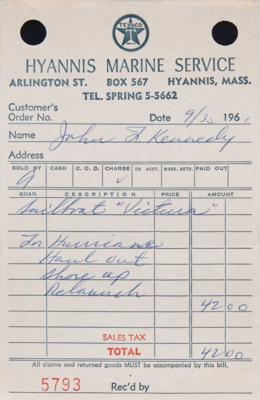 TEXACO
T
HYANNIS MARINE SERVICE
ARLINGTON ST. BOX 567 HYANNIS, MASS.
TEL. SPRING 5-5662
Customer's
Order No. Date 9/30 1961
Name John F. Kennedy
Address
SOLD BY CASH C.O.D. CHARGE ON ACCT. MDSE. RETD. PAID OUT
QUAN DESCRIPTION PRICE AMOUNT
Sailboat "Victura"
For Hurricane
Haul out
Shore up
Relaunch
42 00
SALES TAX
TOTAL 42 00
All claims and returned goods MUST be accompanied by this bill.
5793 Rec'd by